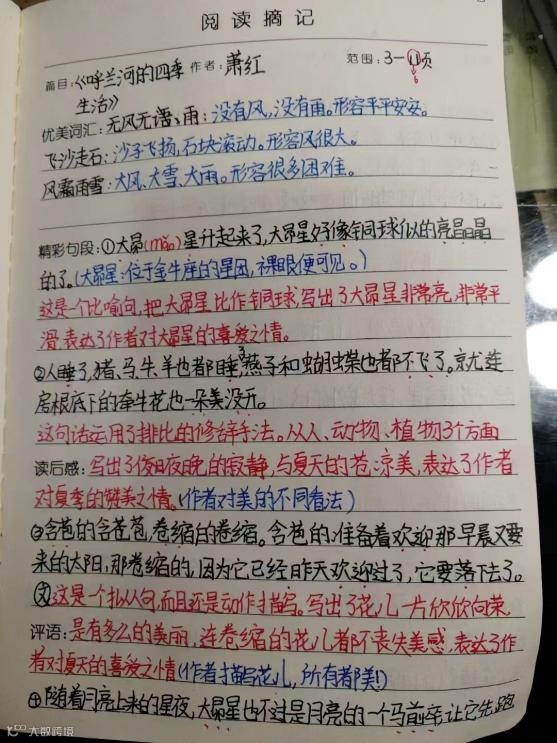 阅读摘记
篇目:《呼兰河的四季 作者:萧红 范围:3-11页
6
生活》
优美词汇:无风无雨:没有风,没有雨。形容平平安安。
飞沙走石:沙子飞扬,石块滚动。形容风很大。
风霜雨雪:大风、大雪、大雨。形容很多困难。
精彩句段:①大昴(mǎo)星升起来了,大昴星好像铜球似的亮晶晶
的了。(大昴星:位于金牛座的星团,裸眼便可见。)
这是个比喻句,把大昴星比作铜球,写出了大昴星非常亮,非常平
滑,表达了作者对大昴星的喜爱之情。
②人睡了,猪、马、牛、羊也都睡了,燕子和蝴蝶也都不飞了。就连
房根底下的牵牛花也一朵美没开。
这句话运用了排比的修辞手法。从人、动物、植物3个方面
读后感:写出了夏日夜晚的寂静,与夏天的苍凉美,表达了作者
对夏季的赞美之情。(作者对美的不同看法)
③含苞的含苞,卷缩的卷缩。含苞的准备着欢迎那早晨又要
来的太阳,那卷缩的,因为它已经昨天欢迎过了,它要落下去了。
这是个拟人句,而且还是动作描写。写出了花儿一片欣欣向荣,
评语:是有多么的美丽,连卷缩的花儿都不表失美感,表达了作
者对夏天的喜爱之情(作者描写花儿,所有都美!)
④随着月亮上来的星夜,大昴星也不过是月亮的一个马前卒,让它先跑
大数跨境